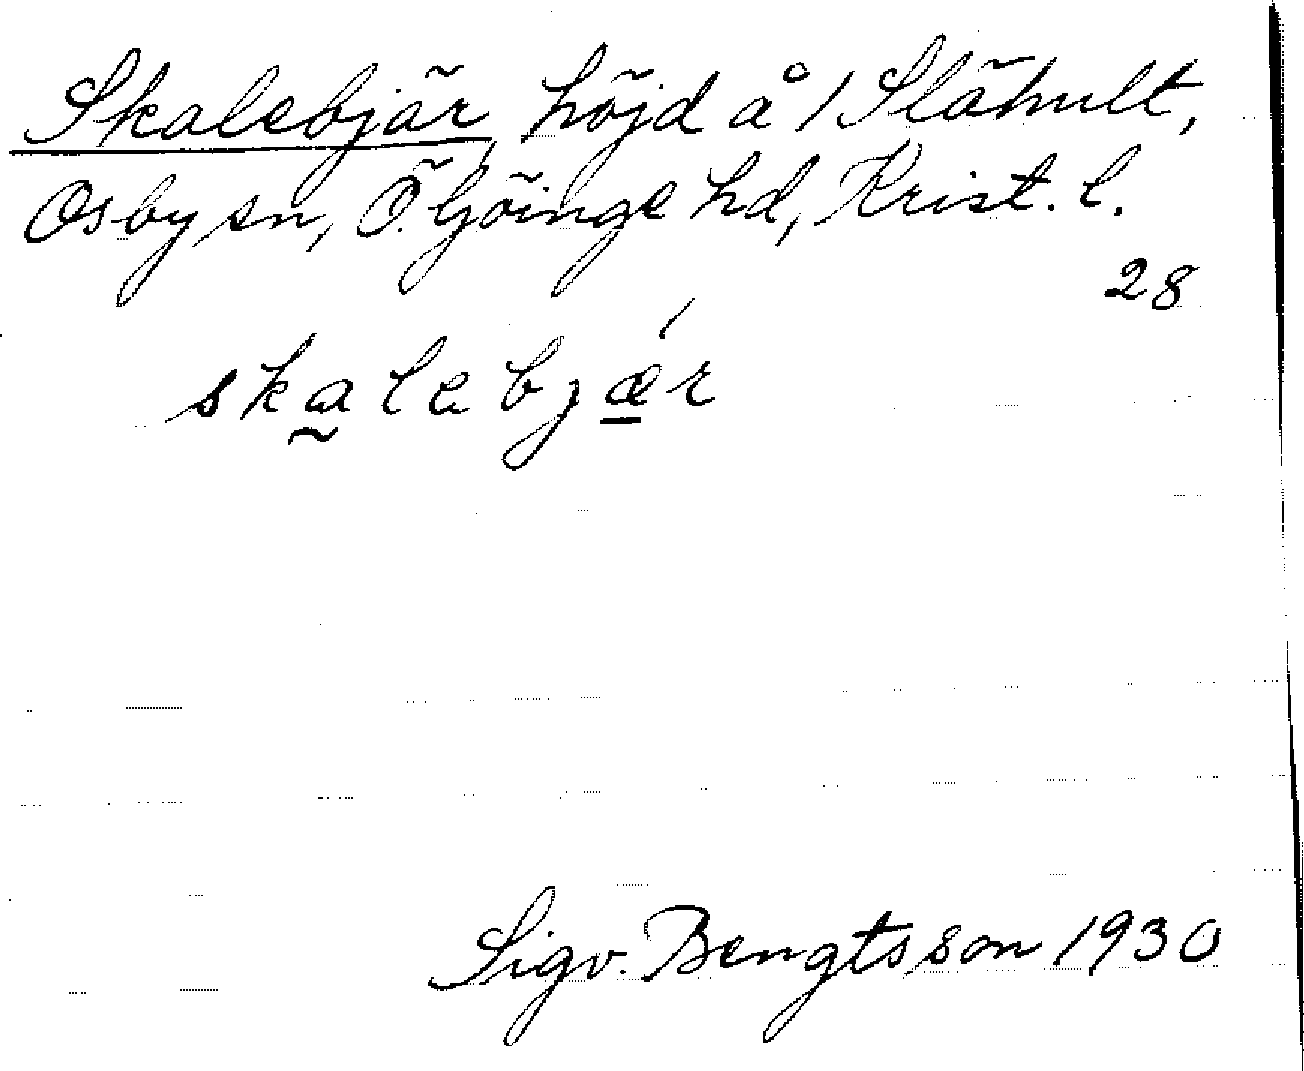 Skalebjär höjd å 1 Slähult,
Osby sn, Ö. Göinge hd, Krist. l.
28
skalebjǽr
Sigv. Bengtsson 1930